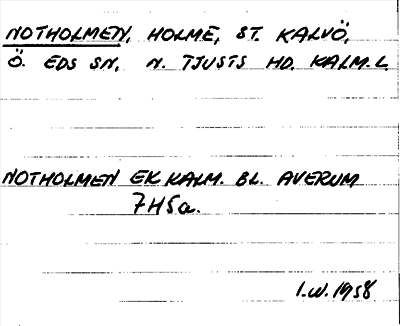 NOTHOLMEN, HOLME, ST. KALVÖ,
Ö. EDS SN, N. TJUSTS HD. KALM. L.
NOTHOLMEN EK KALM. BL. AVERUM
7H5a.
I.W. 1958